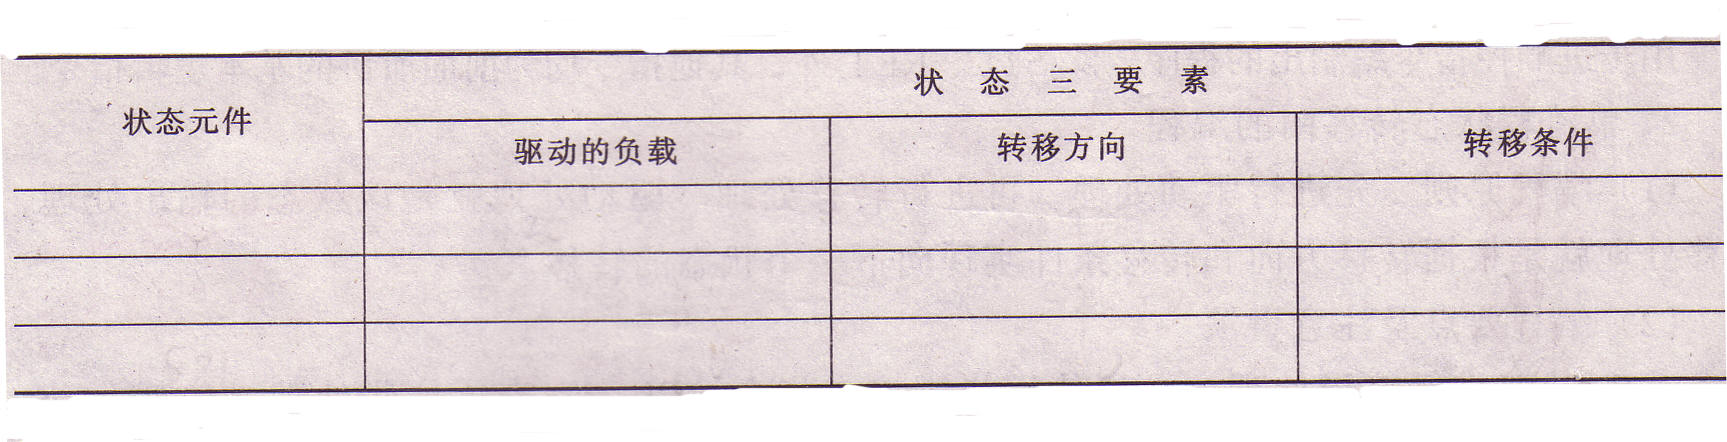 状态元件
状态三要素
驱动的负载
转移方向
转移条件